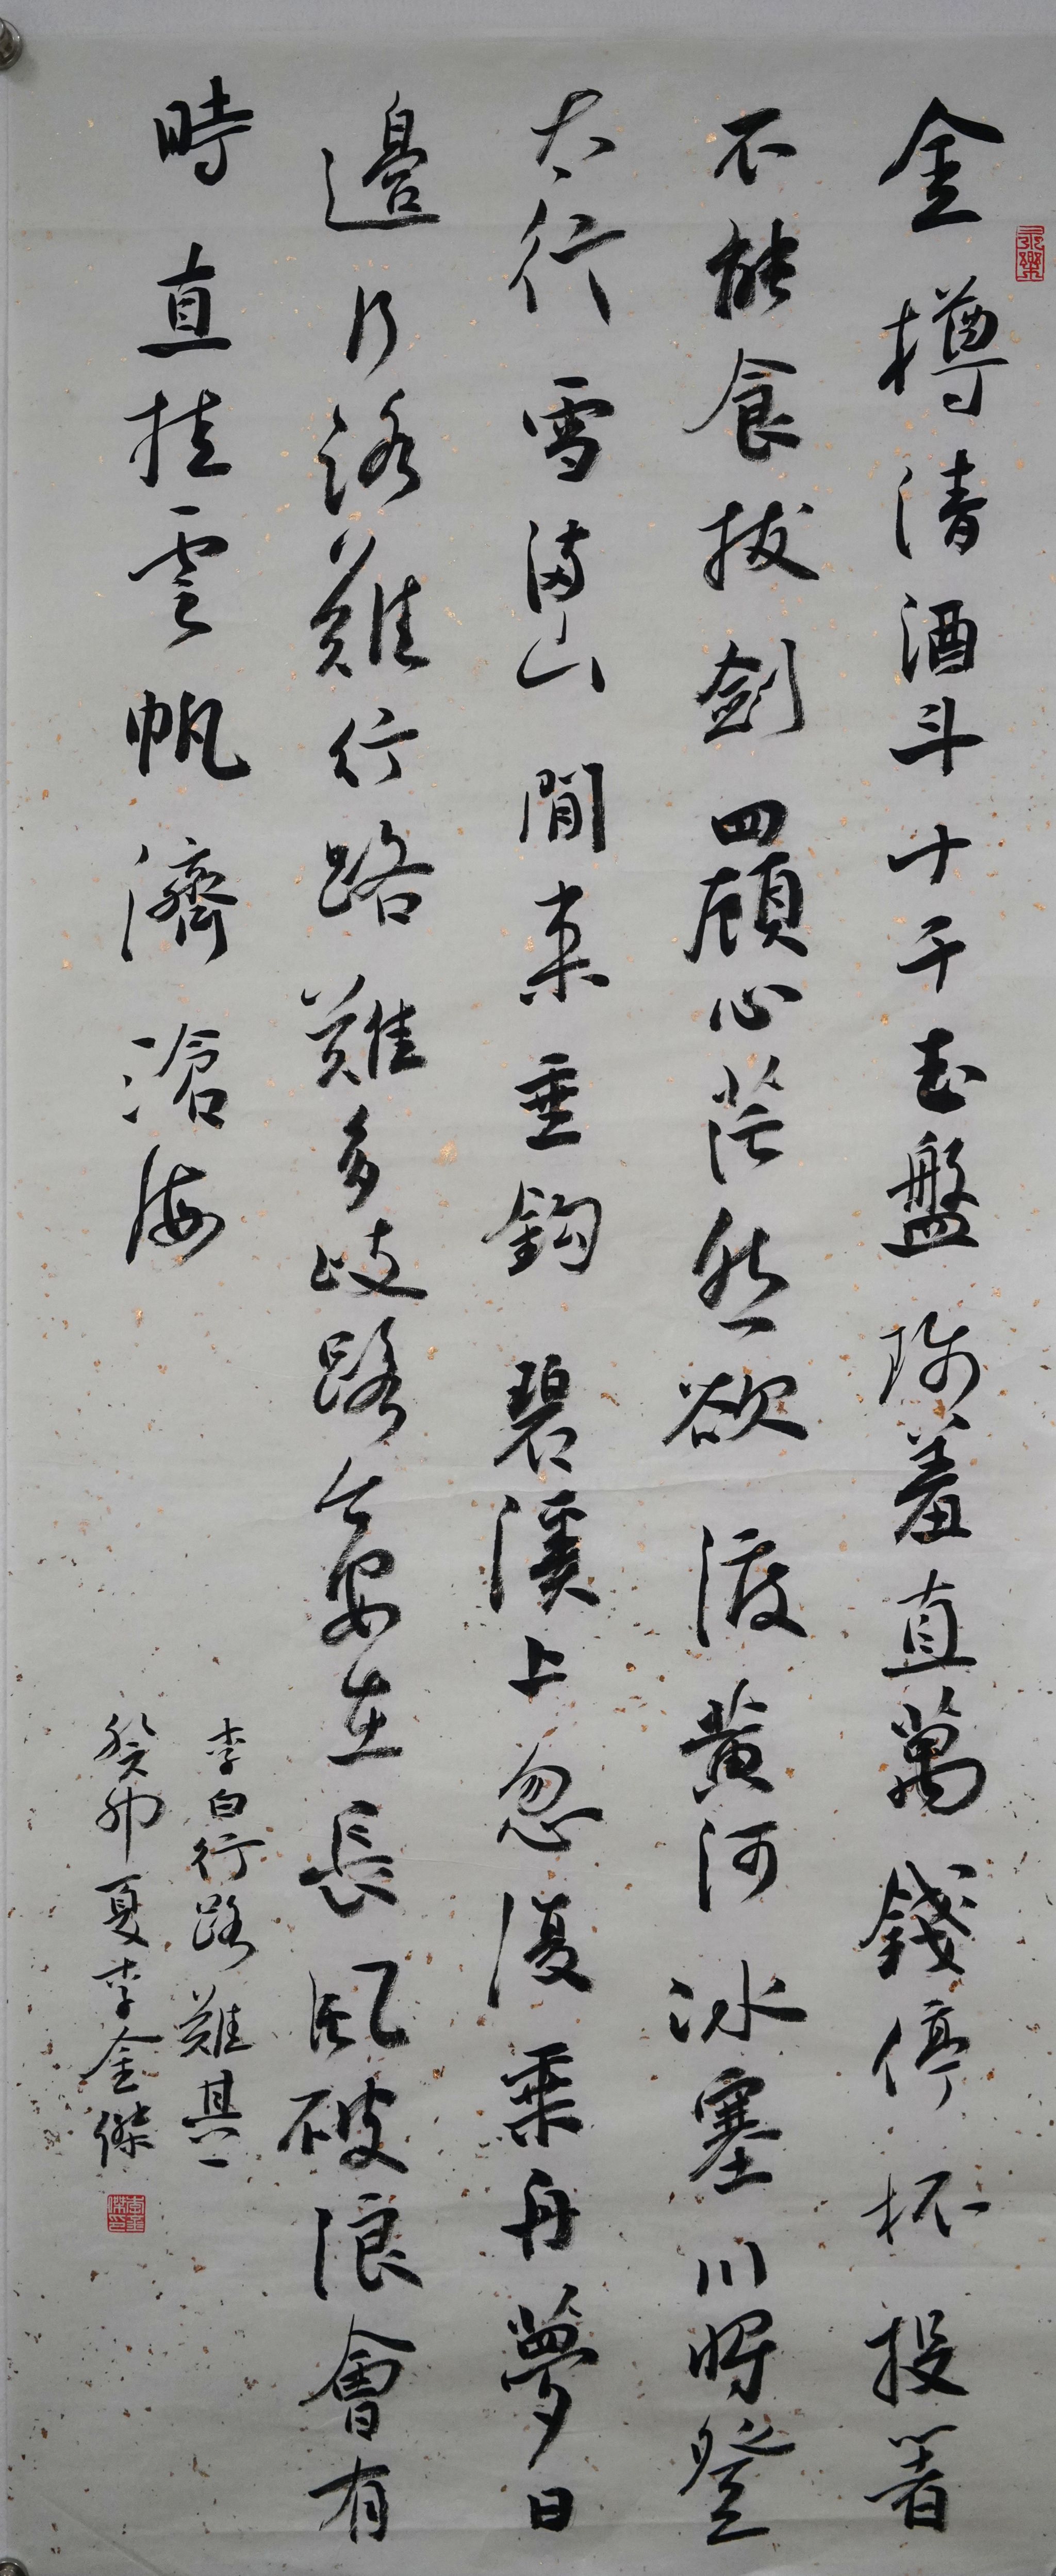 金樽清酒斗十千玉盤珍羞直萬錢停杯投箸
不能食拔劍四顧心茫然欲渡黃河冰塞川將登
太行雪滿山閒來垂釣碧溪上忽復乘舟夢日
邊行路難行路難多歧路今安在長風破浪會有
時直挂雲帆濟滄海
李白行路難其一
癸卯夏李金傑